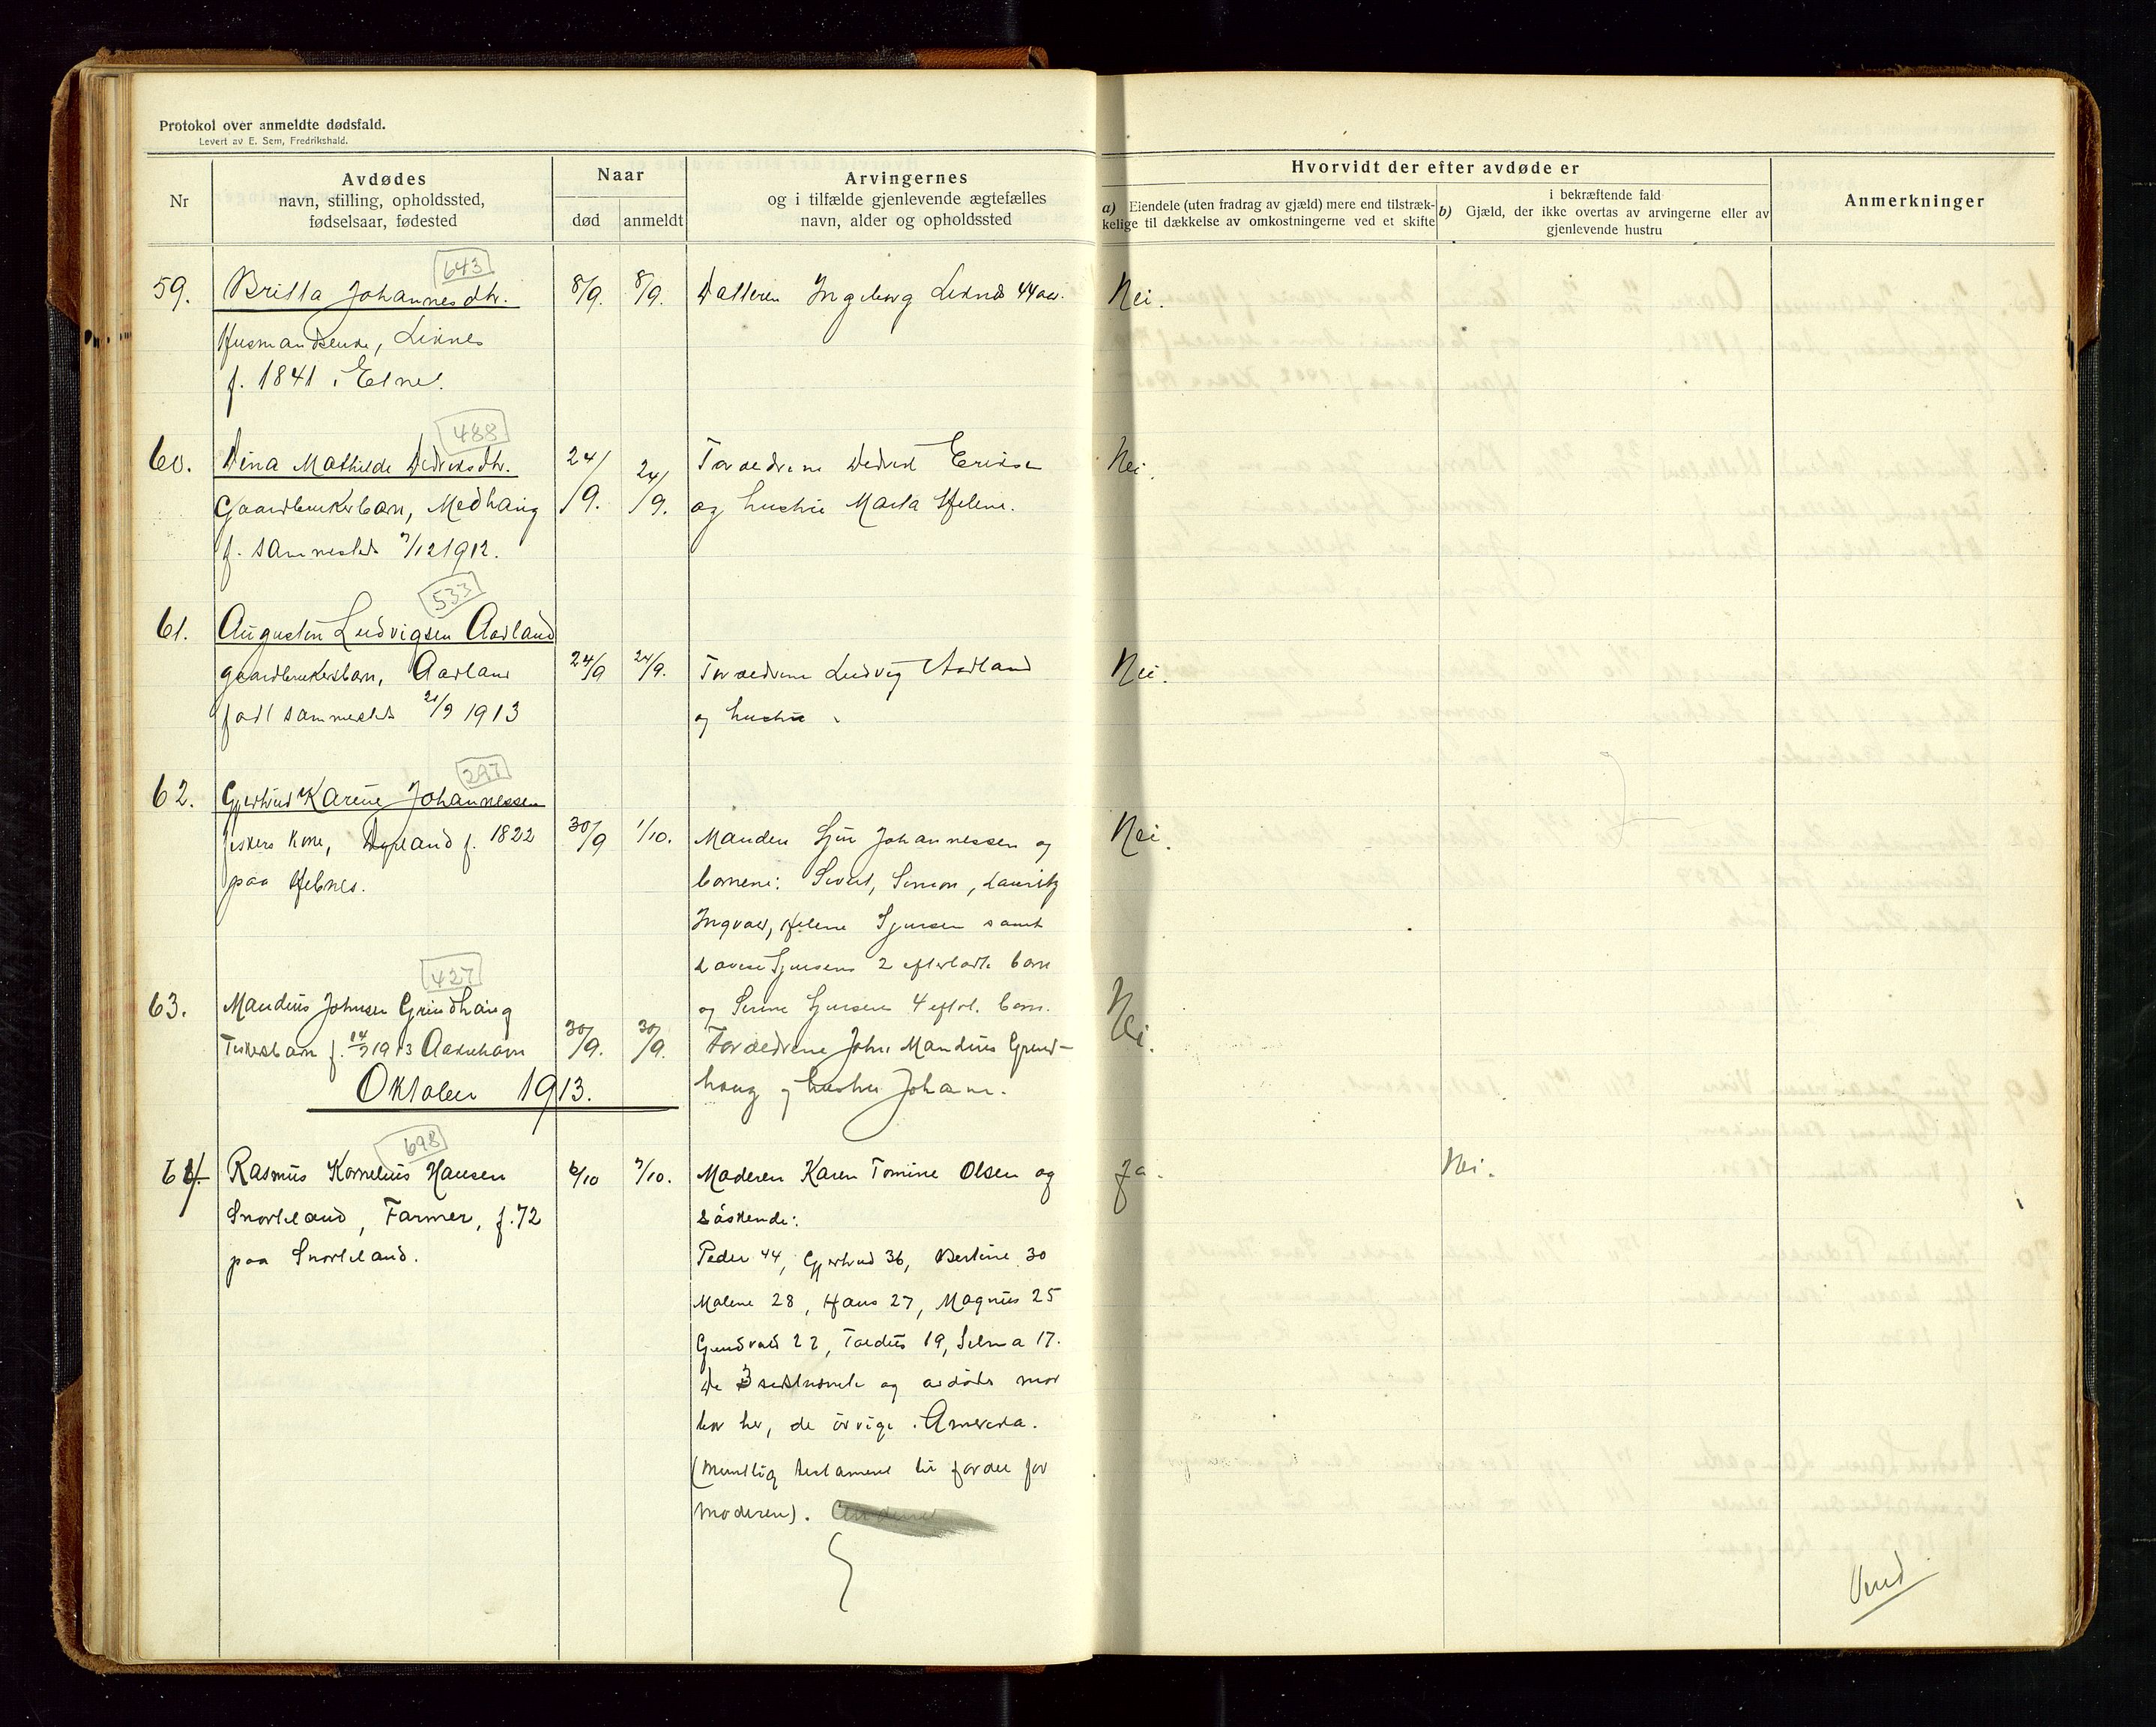 Protokol over anmeldte dødsfald.
Levert av E. Sem, Fredrikshald.
Nr
Avdødes
navn, stilling, opholdssted,
fødselsaar, fødested
Naar
død
anmeldt
Arvingernes
og i tilfælde gjenlevende ægtefælles
navn, alder og opholdssted
Hvorvidt der efter avdøde er
a) Eiendele (uten fradrag av gjæld) mere end tilstræk-
kelige til dækkelse av omkostningerne ved et skifte
i bekræftende fald
b) Gjæld, der ikke overtas av arvingerne eller av
gjenlevende hustru
Anmerkninger
643
59. Britta Johannesdtr. 8/9. 8/9. Datteren Ingeborg Leknes 44 aar. Nei.
Husmandsenke, Leknes
f. 1841 i Etne.
488
60. Dina Mathilde Didriksdtr. 24/9. 24/9. Forældrene Didrik Eriksen Nei.
Gaardbrukerbarn, Medhaug og hustru Marta Helene.
f. sammesteds 7/12 1912.
533
61. Augustin Ludvigsen Aadland
gaardbrukersbarn, Aadland 24/9 24/9. Forældrene Ludvig Aadland Nei.
født sammesteds 21/9 1913 og hustru
297
62. Gjertrud Karine Johannessen
fiskers kone, f. 1822 30/9 1/10. Manden Sjur Johannessen og Nei.
paa Hebnes. børnene: Sivert, Simon, Lauritz
Ingvar, Helene Sjursen samt
Sjursens 2 efterladte barn
427
63. Mandius Johnsen Grindhaug og Serine Sjursens 4 eftrl. barn. Nei.
Fiskerbarn f. 14/9 1913 Aakrehavn 30/9. 30/9. Forældrene John Mandius Grind-
haug og hustru Johanne.
Oktober 1913.
698
64. Rasmus Kornelius Hansen 6/10 7/10. Moderen Karen Tomine Olsen og Ja. Nei.
Snorteland, Farmer, f. 72 Søskende:
paa Snorteland. Peder 44, Gjertrud 36, Bertine 30
Malene 28, Hans 27, Magnus 25
Gundvald 22, 19, Selma 17.
De 3 sidstnævnte og avdødes mor
bor her, de øvrige i Amerika.
(Mundtlig testament til fordel for
moderen).
Vend